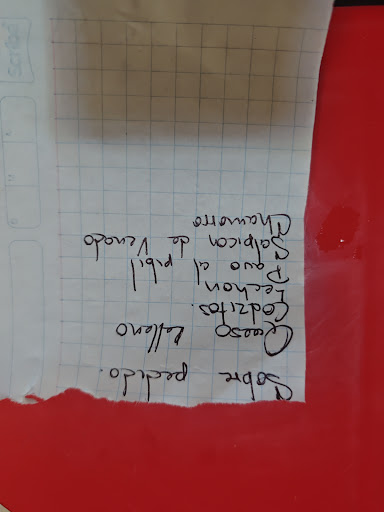 Sobre pedido.
Queso Relleno
Codzitos.
Lechon
Pavo al pibil
Salpicon de Venado
Chamorro
scribe